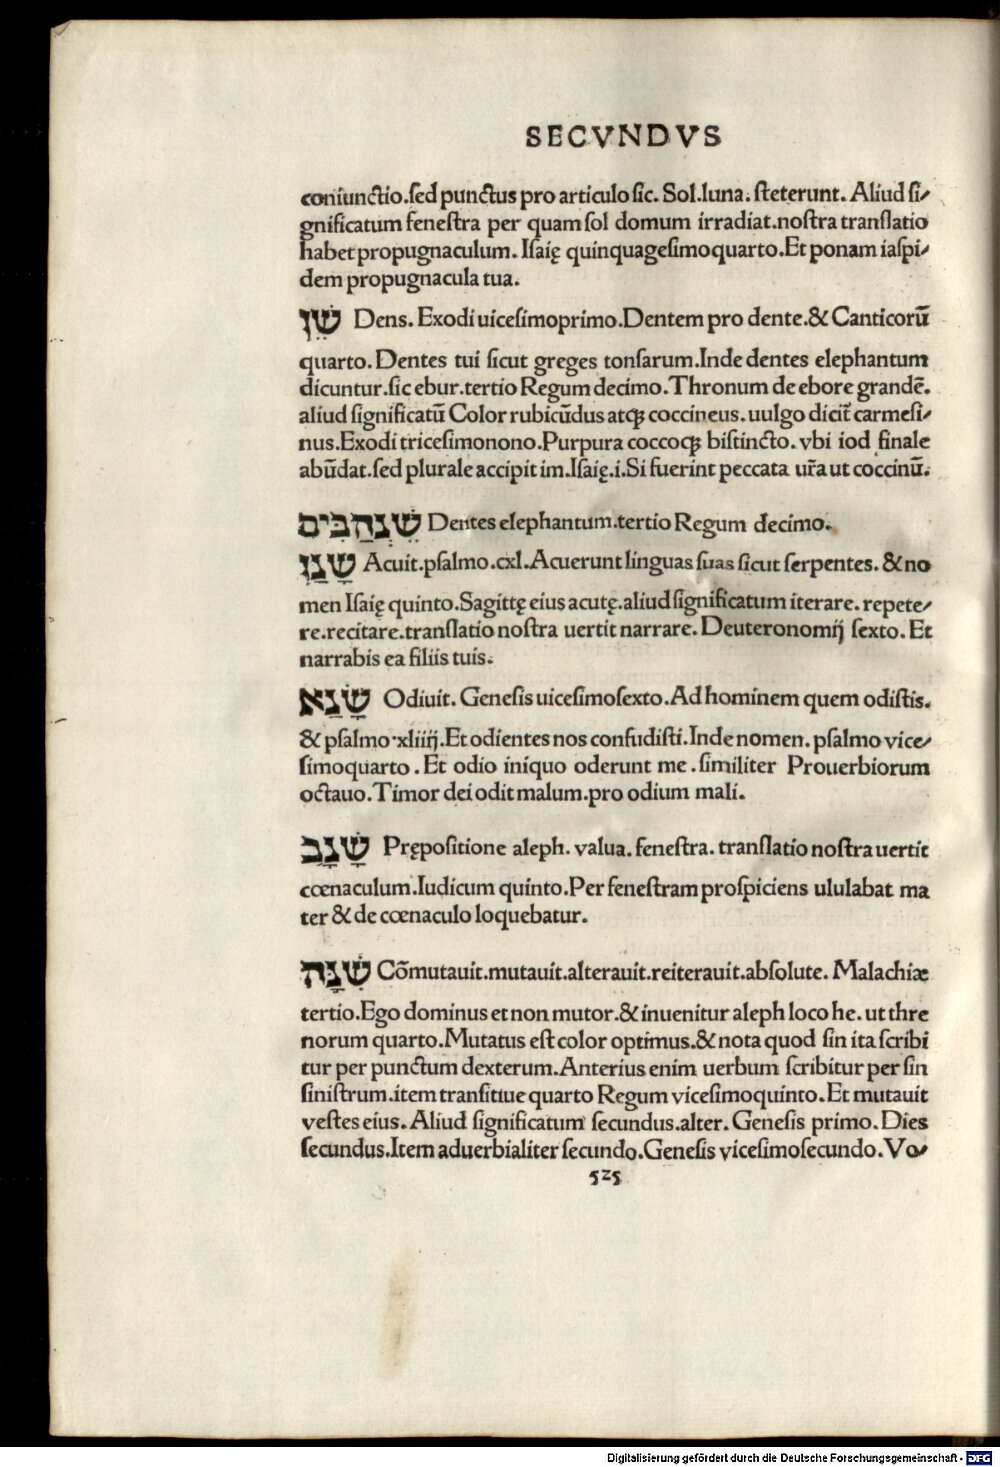 SECVNDVS
coniunctio.sed punctus pro articulo sic. Sol.luna. steterunt. Aliud si/
gnificatum fenestra per quam sol domum irradiat.nostra translatio
habet propugnaculum. Isaię quinquagesimoquarto.Et ponam iaspi/
dem propugnacula tua.
שֵׁן Dens. Exodi uicesimoprimo.Dentem pro dente.& Canticorū
quarto. Dentes tui sicut greges tonsarum.Inde dentes elephantum
dicuntur.sic ebur.tertio Regum decimo. Thronum de ebore grandē.
aliud significatū Color rubicūdus atqꝫ coccineus. uulgo dicit̄ carmesi/
nus.Exodi tricesimonono.Purpura coccoqꝫ bistincto. vbi iod finale
abūdat.sed plurale accipit im.Isaię.i.Si fuerint peccata ur̄a ut coccinū.
שֵׁנְהַבִּים Dentes elephantum.tertio Regum decimo.
שָׁנַן Acuit.psalmo.cxl.Acuerunt linguas suas sicut serpentes. & no
men Isaię quinto.Sagittę eius acutę.aliud significatum iterare. repete/
re.recitare.translatio nostra uertit narrare. Deuteronomij sexto. Et
narrabis ea filiis tuis.
שָׂנֵא Odiuit. Genesis uicesimosexto. Ad hominem quem odistis.
& psalmo.xliiij.Et odientes nos confudisti.Inde nomen. psalmo vice/
simoquarto. Et odio iniquo oderunt me. similiter Prouerbiorum
octauo. Timor dei odit malum.pro odium mali.
שָׁנָב Prępositione aleph. valua. fenestra. translatio nostra uertit
cœnaculum.Iudicum quinto.Per fenestram prospiciens ululabat ma
ter & de cœnaculo loquebatur.
שִׁנָּה Cōmutauit.mutauit.alterauit.reiterauit.absolute. Malachiæ
tertio.Ego dominus et non mutor.& inuenitur aleph loco he. ut thre
norum quarto.Mutatus est color optimus.& nota quod sin ita scribi
tur per punctum dexterum. Anterius enim uerbum scribitur per sin
sinistrum.item transitiue quarto Regum vicesimoquinto. Et mutauit
vestes eius. Aliud significatum secundus.alter. Genesis primo. Dies
secundus.Item aduerbialiter secundo.Genesis vicesimosecundo. Vo/
525
Digitalisierung gefördert durch die Deutsche Forschungsgemeinschaft - DFG